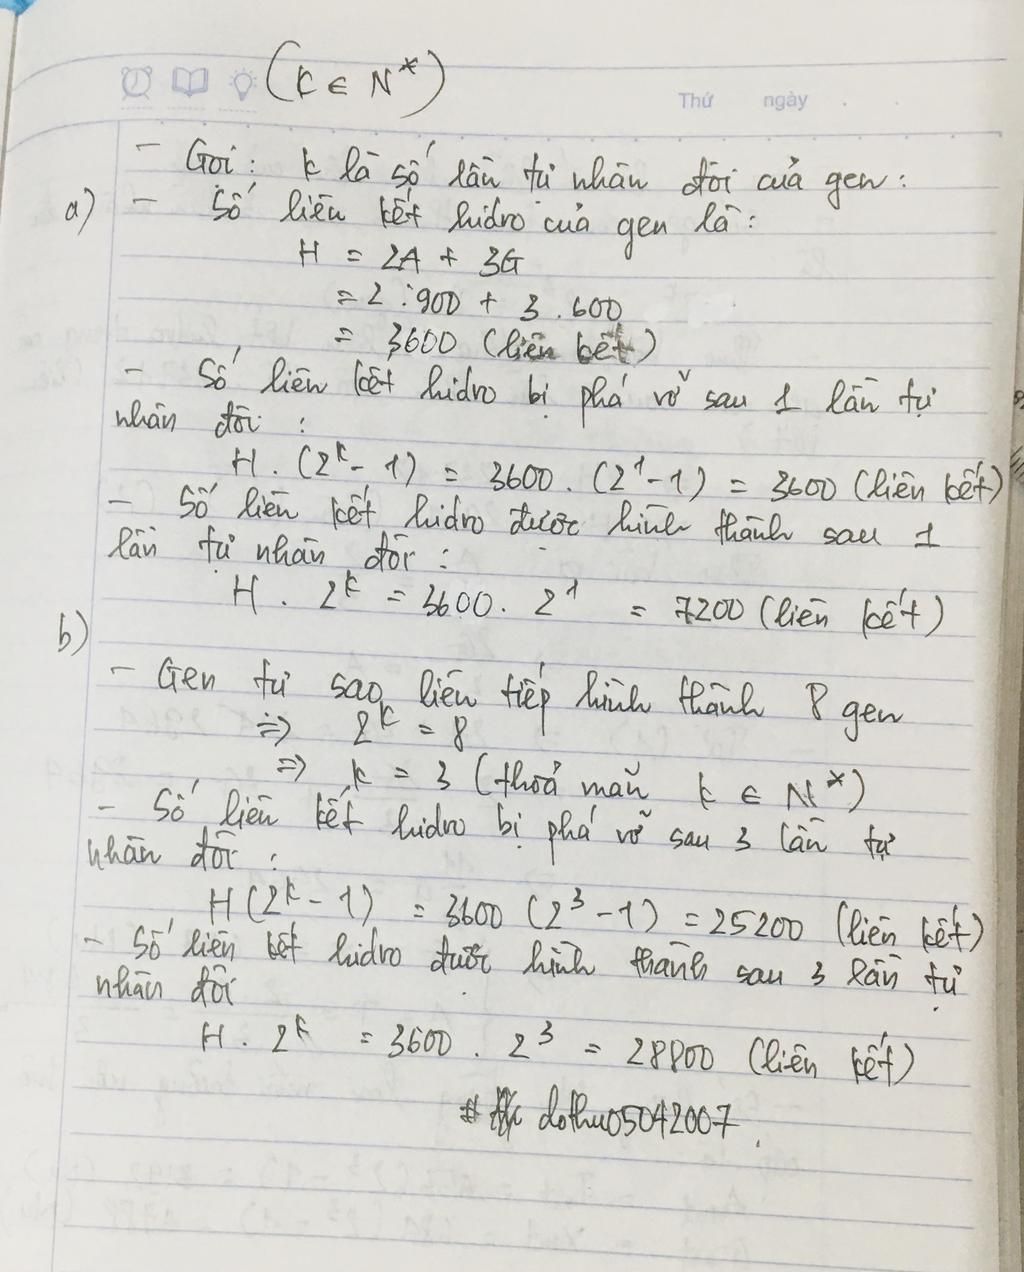 (k ∈ N*)
Thứ ngày
- Gọi: k là số lần tự nhân đôi của gen:
a) - Số liên kết hidro của gen là:
H = 2A + 3G
= 2.900 + 3.600
= 3600 (liên kết)
- Số liên kết hidro bị phá vỡ sau 1 lần tự
nhân đôi:
H. (2^k - 1) = 3600. (2^1 - 1) = 3600 (liên kết)
- Số liên kết hidro được hình thành sau 1
lần tự nhân đôi:
H. 2^k = 3600. 2^1 = 7200 (liên kết)
b)
- Gen tự sao liên tiếp hình thành 8 gen
=> 2^k = 8
=> k = 3 (thoả mãn k ∈ N*)
- Số liên kết hidro bị phá vỡ sau 3 lần tự
nhân đôi:
H(2^k - 1) = 3600 (2^3 - 1) = 25200 (liên kết)
- Số liên kết hidro được hình thành sau 3 lần tự
nhân đôi
H. 2^k = 3600. 2^3 = 28800 (liên kết)
# dothu05042007